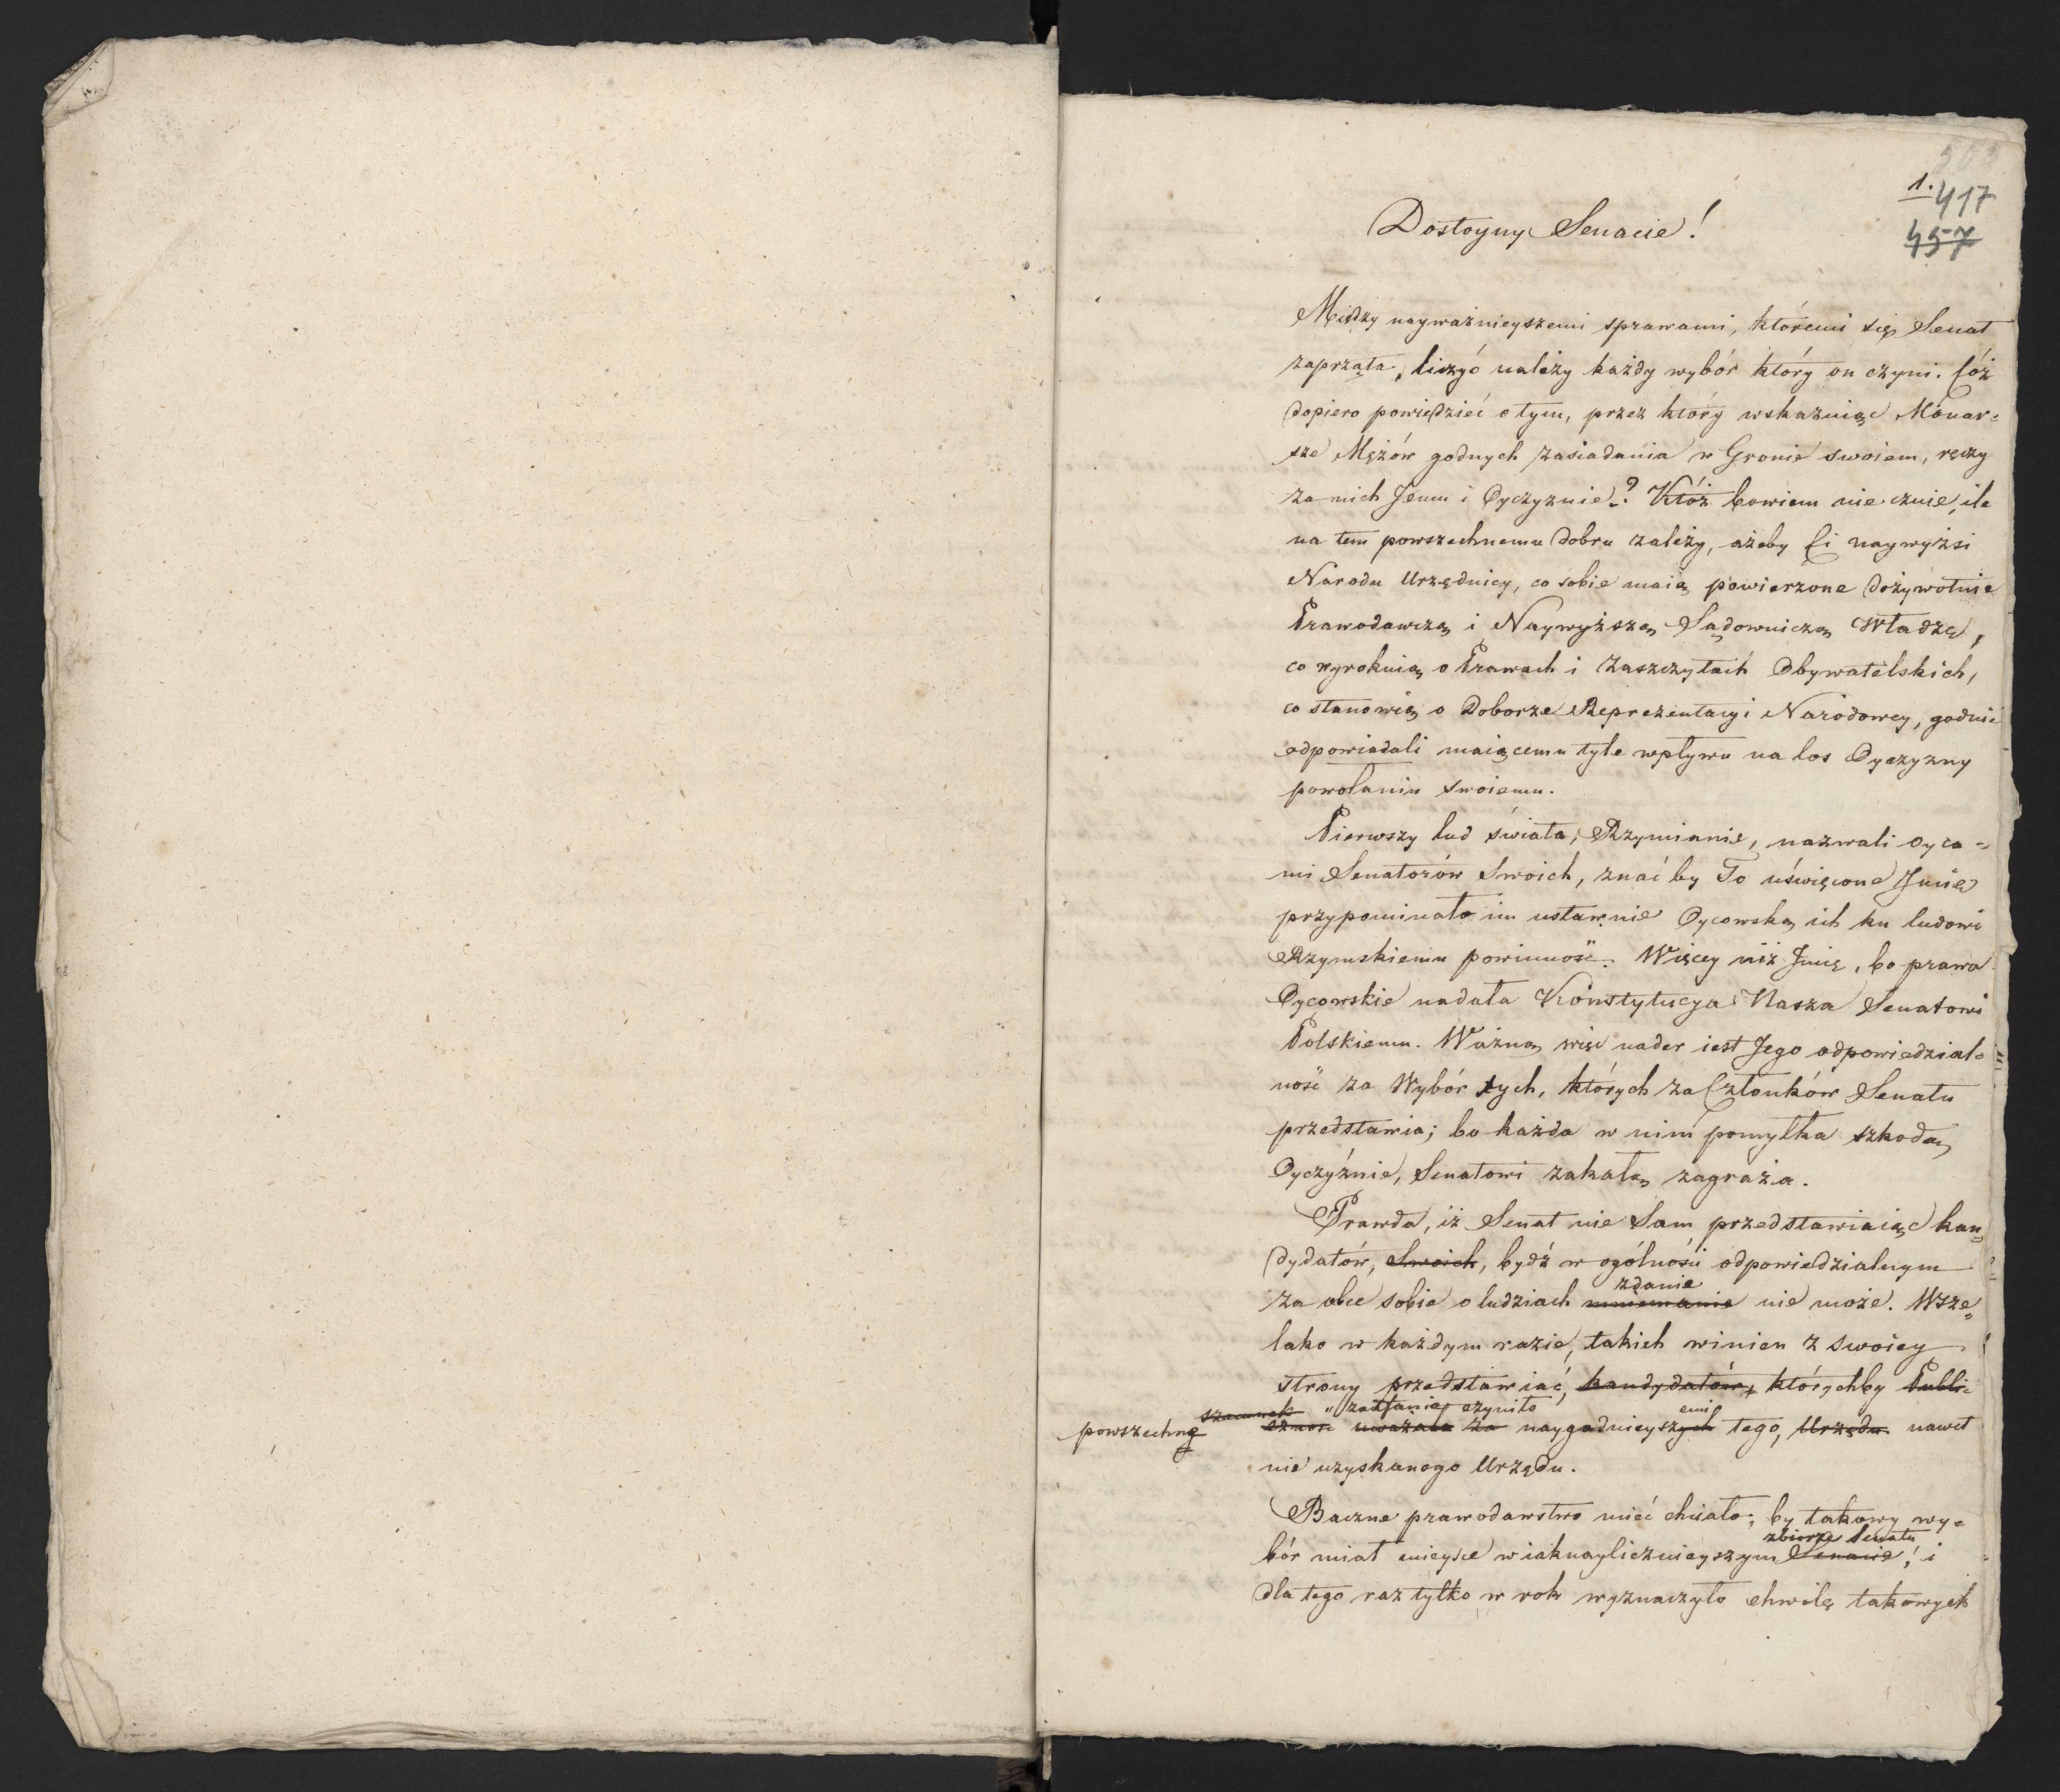 1.
417
457
Dostoyny Senacie!
Między nayważnieyszemi sprawami, któremi się Senat
zaprząta, liczyć należy każdy wybór który on czyni. Cóż
dopiero powiedzieć o tym, przez który wskazuiąc Monar=
sze Mężów godnych zasiadania w Gronie swoiem, ręczy
za nich Jemu i Oyczyznie? Któż bowiem nie czuie, ile
na tem powszechnemu dobru zależy, ażeby Ci naywyżsi
Narodu Urzędnicy, co sobie maią powierzone dożywotnie
Prawodawczą i Naywyższą Sądowniczą Władzę,
co wyrokuią o Prawach i Zaszczytach Obywatelskich,
co stanowią o Doborze Reprezentacyi Narodowey, godnie
odpowiadali maiącemu tyle wpływu na los Oyczyzny
powołaniu swoiemu.
Pierwszy lud świata, Rzymianie, nazwali Oyca=
mi Senatorów Swoich, znać by To uświęcone Jmię
przypominało im ustawnie Oycowską ich ku ludowi
Rzymskiemu powinność. Więcey niż Jmię, bo prawa
Oycowskie nadała Konstytucya Nasza Senatowi
Polskiemu. Ważną więc nader iest Jego odpowiedzial=
ność za Wybór tych, których za Członków Senatu
przedstawia; bo każda w nim pomyłka szkodą
Oyczyźnie, Senatowi zakałą zagraża.
Prawda, iż Senat nie Sam przedstawiaiąc kan=
dydatów, Swoich, bydź w ogólności odpowiedzialnym
zdanie
za obce sobie o ludziach mniemanie nie może. Wsze=
lako w każdym razie, takich winien z swoiey
strony przedstawiać, kandydatów, którychby Publi=
szacunek zaufanie czyniło emi
powszechne czność uważała za naygodnieyszych tego, Urzędu nawet
nie uzyskanego Urzędu.
Baczne prawodawstwo mieć chciało, by takowy wy=
zbiorze Senatu
bór miał mieysce w iaknaylicznieyszym Senacie; i
dla tego raz tylko w rok wyznaczyło chwilę takowych